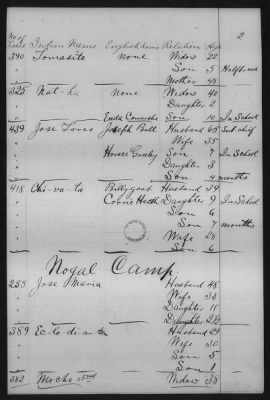 2
No of
Tickets Indian Names English name Relation Age
390 Tomasita None Widow 22
" Son 5 Halfbreed
" Mother 48
325 Nat-ha None Widow 40
" Daughter 2
" Son 10 In School
439 Jose Torres Joseph Bell Husband 65 Sub chief
" Wife 35
" Son 7 In School
" Daughter 3
" Son 4 months
418 Chi-va-ta Billygoat Husband 34
" Daughter 9 In School
" Son 6
" Son 7 months
" Wife 28
" Son 6
Nogal Camp
258 Jose Maria Husband 48
" Wife 38
" Daughter 11
" Daughter 2
389 Husband 29
" Wife 30
" Son 5
" Son 1
382 Mocho Widow 38